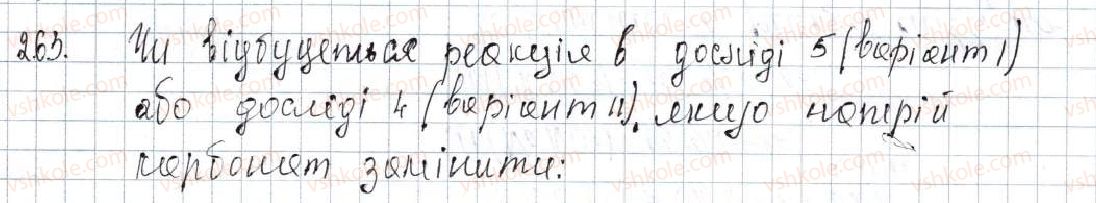 263. Чи відбудеться реакція в досліді 5 (варіант I)
або досліді 4 (варіант II), якщо натрій
карбонат замінити: